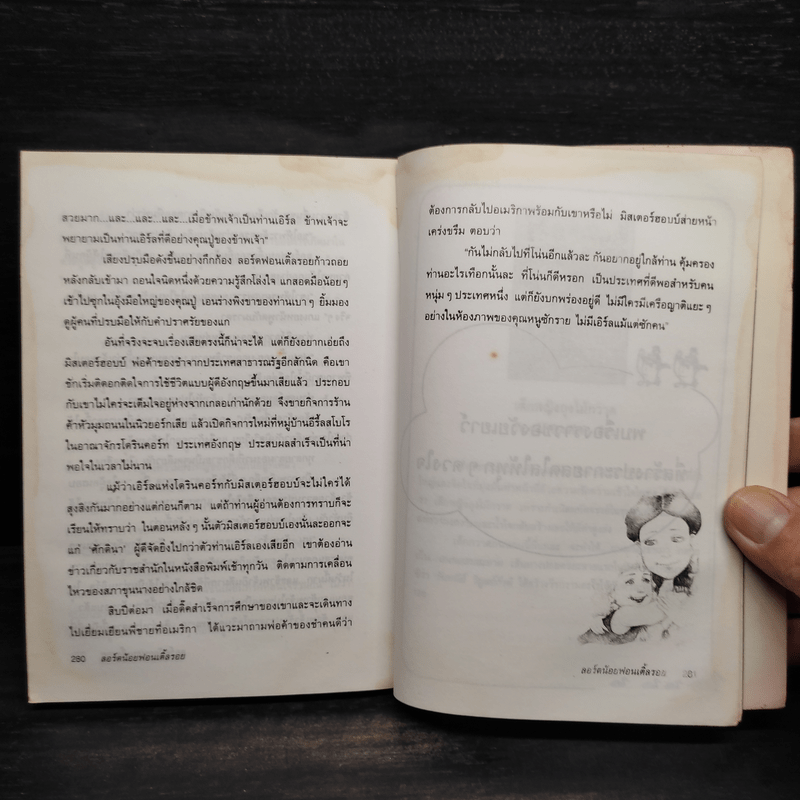 สวยมาก...และ...และ...และ...เมื่อข้าพเจ้าเป็นท่านเอิร์ล ข้าพเจ้าจะ
พยายามเป็นท่านเอิร์ลที่ดีอย่างคุณปู่ของข้าพเจ้า"
เสียงปรบมือดังขึ้นอย่างกึกก้อง ลอร์ดฟอนเติ้ลรอยก้าวถอย
หลังกลับเข้ามา ถอนใจนิดหนึ่งด้วยความรู้สึกโล่งใจ แกสอดมือน้อยๆ
เข้าไปซุกในอุ้งมือใหญ่ของคุณปู่ เอนร่างพิงขาของท่านเบาๆ ยิ้มมอง
ดูผู้คนที่ปรบมือให้กับคำปราศรัยของแก
อันที่จริงจะจบเรื่องเสียตรงนี้ก็น่าจะได้ แต่ก็ยังอยากเอ่ยถึง
มิสเตอร์ฮอบบ์ พ่อค้าของชำจากประเทศสาธารณรัฐอีกสักนิด คือเขา
ชักเริ่มติดอกติดใจการใช้ชีวิตแบบผู้ดีอังกฤษขึ้นมาเสียแล้ว ประกอบ
กับเขาไม่ใคร่จะเต็มใจอยู่ห่างจากเกลอเก่านักด้วย จึงขายกิจการร้าน
ค้าหัวมุมถนนในนิวยอร์กเสีย แล้วเปิดกิจการใหม่ที่หมู่บ้านอีรี้ลสโบโร
ในอาณาจักรโดรินคอร์ท ประเทศอังกฤษ ประสบผลสำเร็จเป็นที่น่า
พอใจในเวลาไม่นาน
แม้ว่าเอิร์ลแห่งโดรินคอร์ทกับมิสเตอร์ฮอบบ์จะไม่ใคร่ได้
สุงสิงกันมากอย่างแต่ก่อนก็ตาม แต่ถ้าท่านผู้อ่านต้องการทราบก็จะ
เรียนให้ทราบว่า ในตอนหลังๆ นั้นตัวมิสเตอร์ฮอบบ์เองนั่นละออกจะ
แก่ 'ศักดินา' ผู้ดีจัดยิ่งไปกว่าตัวท่านเอิร์ลเองเสียอีก เขาต้องอ่าน
ข่าวเกี่ยวกับราชสำนักในหนังสือพิมพ์เช้าทุกวัน ติดตามการเคลื่อน
ไหวของสภาขุนนางอย่างใกล้ชิด
สิบปีต่อมา เมื่อดิ๊คสำเร็จการศึกษาของเขาและจะเดินทาง
ไปเยี่ยมเยียนพี่ชายที่อเมริกา ได้แวะมาถามพ่อค้าของชำคนดีว่า
280 ลอร์ดน้อยฟอนเติ้ลรอย
ต้องการกลับไปอเมริกาพร้อมกับเขาหรือไม่ มิสเตอร์ฮอบบ์ส่ายหน้า
เคร่งขรึม ตอบว่า
"กันไม่กลับไปที่โน่นอีกแล้วละ กันอยากอยู่ใกล้ท่าน คุ้มครอง
ท่านอะไรเทือกนั้นละ ที่โน่นก็ดีหรอก เป็นประเทศที่ดีพอสำหรับคน
หนุ่มๆ ประเทศหนึ่ง แต่ก็ยังบกพร่องอยู่ดี ไม่มีใครมีเครือญาติแยะๆ
อย่างในห้องภาพของคุณหนูซักราย ไม่มีเอิร์ลแม้แต่ซักคน"
ลอร์ดน้อยฟอนเติ้ลรอย 281